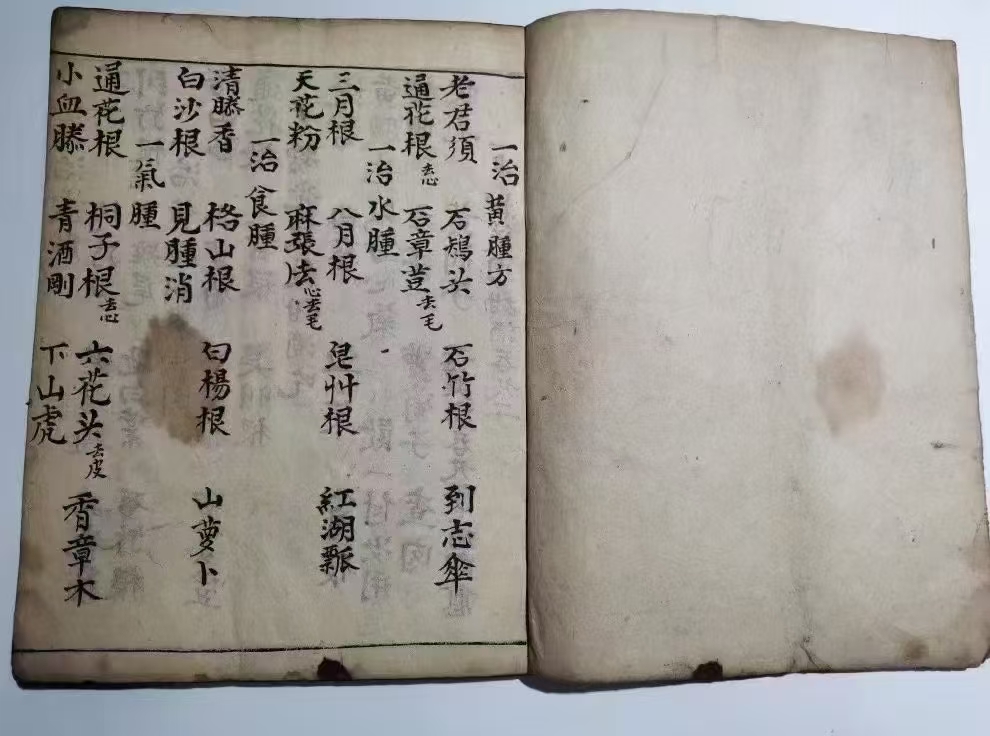 一治黄腫方
老君须 石鴣头 石竹根 到志傘
通花根去心 石章荳去毛
一治水腫
三月根 八月根 皂艸根 紅湖瓢
天花粉 麻張法去心去毛
一治食腫
清縢香 格山根 白楊根 山萝卜
白沙根 見腫消
一氣腫
通花根 桐子根去心 六花头去皮 香章木
小血縢 青酒剛 下山虎